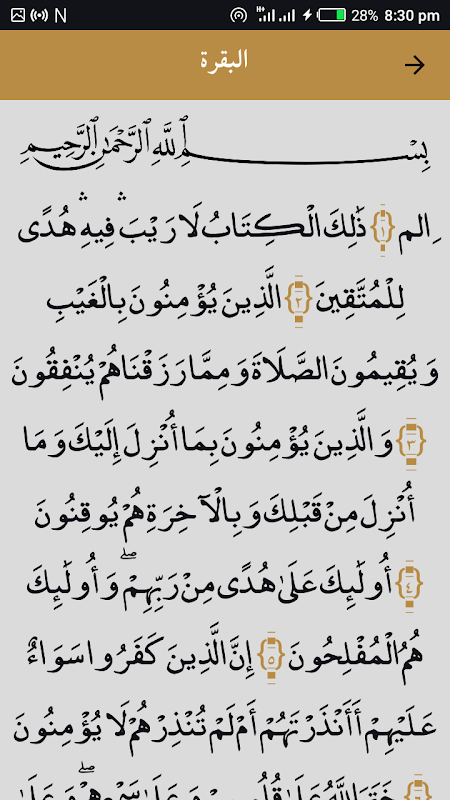 N H+ 28% 8:30 pm
البقرة
بِسْمِ اللَّهِ الرَّحْمَٰنِ الرَّحِيمِ
الم ﴿١﴾ ذَٰلِكَ الْكِتَابُ لَا رَيْبَ ۛ فِيهِ ۛ هُدًى
لِلْمُتَّقِينَ ﴿٢﴾ الَّذِينَ يُؤْمِنُونَ بِالْغَيْبِ
وَيُقِيمُونَ الصَّلَاةَ وَمِمَّا رَزَقْنَاهُمْ يُنْفِقُونَ
﴿٣﴾ وَالَّذِينَ يُؤْمِنُونَ بِمَا أُنْزِلَ إِلَيْكَ وَمَا
أُنْزِلَ مِنْ قَبْلِكَ وَبِالْآخِرَةِ هُمْ يُوقِنُونَ
﴿٤﴾ أُولَٰئِكَ عَلَىٰ هُدًى مِنْ رَبِّهِمْ ۖ وَأُولَٰئِكَ
هُمُ الْمُفْلِحُونَ ﴿٥﴾ إِنَّ الَّذِينَ كَفَرُوا سَوَاءٌ
عَلَيْهِمْ أَأَنْذَرْتَهُمْ أَمْ لَمْ تُنْذِرْهُمْ لَا يُؤْمِنُونَ
﴿٦﴾ خَتَمَ اللَّهُ عَلَىٰ قُلُوبِهِمْ وَعَلَىٰ سَمْعِهِمْ ۖ وَعَلَىٰ